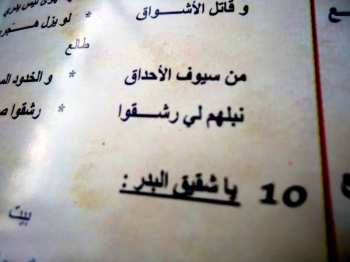 و قاتل الأشــواق * لو يزل
طالع
من سيوف الأحداق * و الخدود
نبلهم لي رشــقوا * رشقوا
10 يا شقيق البدر :
بيت